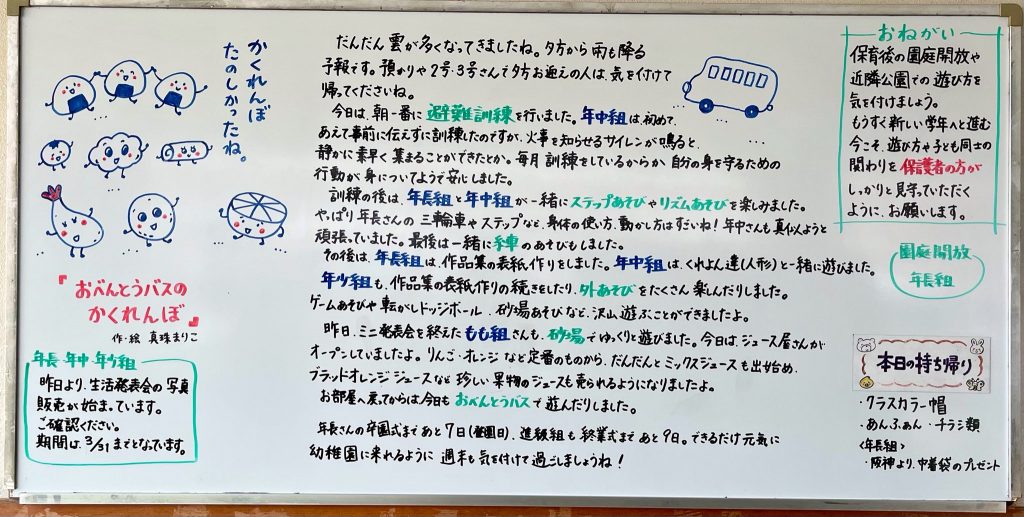 かくれんぼ
たのしかったね。
『おべんとうバスの
かくれんぼ』
作・絵 真珠まりこ
年長・年中・年少組
昨日より、生活発表会の写真
販売が始まっています。
ご確認ください。
期間は3/31までとなっています。
だんだん雲が多くなってきましたね。夕方から雨も降る
予報です。預かりや2号・3号さんで夕方お迎えの人は、気を付けて
帰ってくださいね。
今日は、朝一番に避難訓練を行いました。年中組は、初めて、
あえて事前に伝えずに訓練したのですが、火事を知らせるサイレンが鳴ると、
静かに素早く集まることができたとか。毎月訓練をしているからか自分の身を守るための
行動が身についてようで安心しました。
訓練の後は、年長組と年中組が一緒にステップあそびやリズムあそびを楽しみました。
やっぱり年長さんの三輪車やステップなど、身体の使い方、動かし方はすごいね！年中さんも真似ようと
頑張っていました。最後は一緒に手押し車のあそびもしました。
その後は、年長組は、作品集の表紙作りをしました。年中組は、くれよん達(人形)と一緒に遊びました。
年少組も、作品集の表紙作りの続きをしたり、外あそびをたくさん楽しんだりしました。
ゲームあそびや転がしドッジボール、砂場あそびなど、沢山遊ぶことができましたよ。
昨日、ミニ発表会を終えたもも組さんも、砂場でゆっくりと遊びました。今日は、ジュース屋さんが
オープンしていましたよ。りんご・オレンジなど定番のものから、だんだんとミックスジュースも出始め、
ブラッドオレンジジュースなど珍しい果物のジュースも売られるようになりましたよ。
お部屋へ戻ってからは今日もおべんとうバスで遊んだりしました。
年長さんの卒園式まであと7日(登園日)、進級組も終業式まであと9日。できるだけ元気に
幼稚園に来れるように週末も気を付けて過ごしましょうね！
おねがい
保育後の園庭開放や
近隣公園での遊び方を
気を付けましょう。
もうすぐ新しい学年へと進む
今こそ、遊び方や子ども同士の
関わりを保護者の方が
しっかりと見守っていただく
ように、お願いします。
園庭開放
年長組
本日の持ち帰り
・クラスカラー帽
・あんふぁん・チラシ類
〈年長組〉
・阪神より、巾着袋のプレゼント